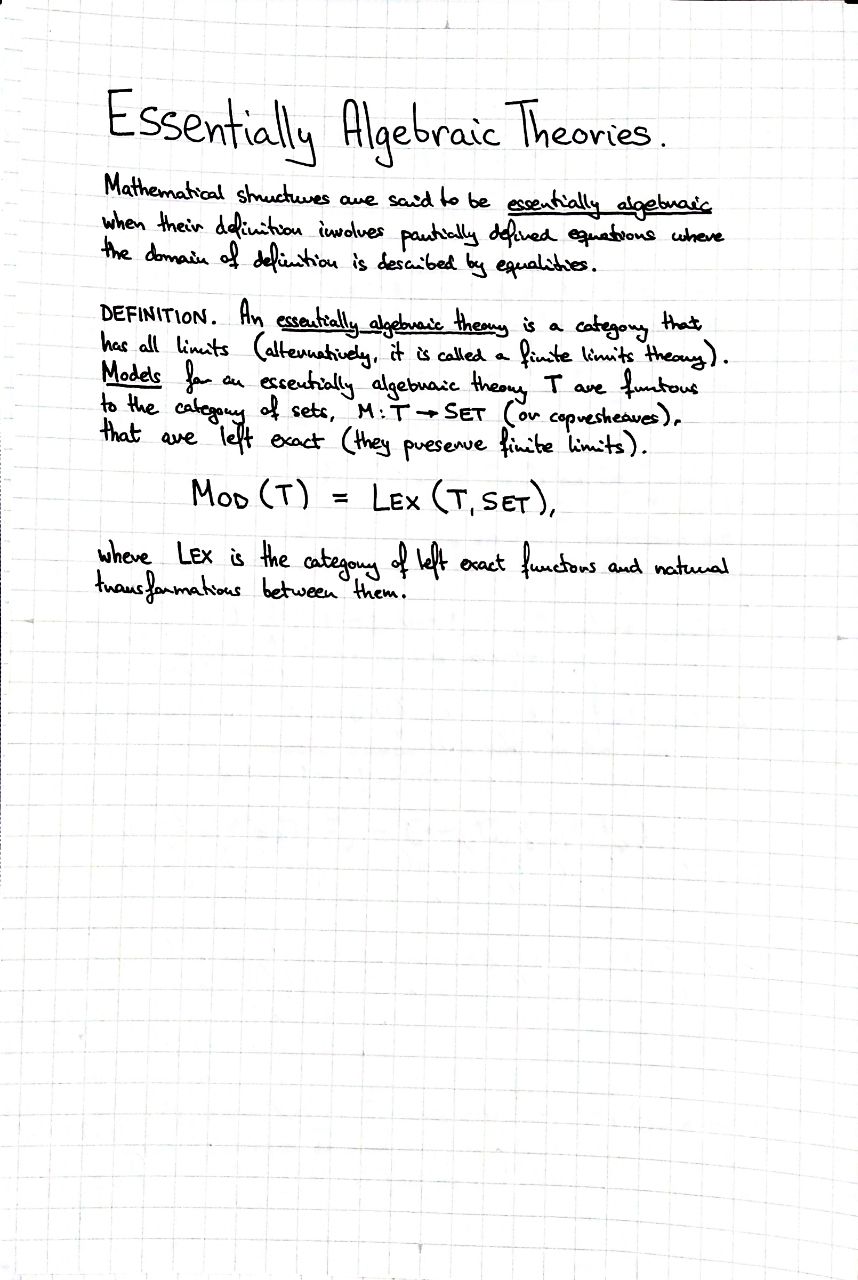 Essentially Algebraic Theories.
Mathematical structures are said to be essentially algebraic
when their definition involves partially defined equations where
the domain of definition is described by equalities.
DEFINITION. An essentially algebraic theory is a category that
has all limits (alternatively, it is called a finite limits theory).
Models for an essentially algebraic theory T are functors
to the category of sets, M: T → SET (or copresheaves),
that are left exact (they preserve finite limits).
MOD (T) = LEX (T, SET),
where LEX is the category of left exact functors and natural
transformations between them.